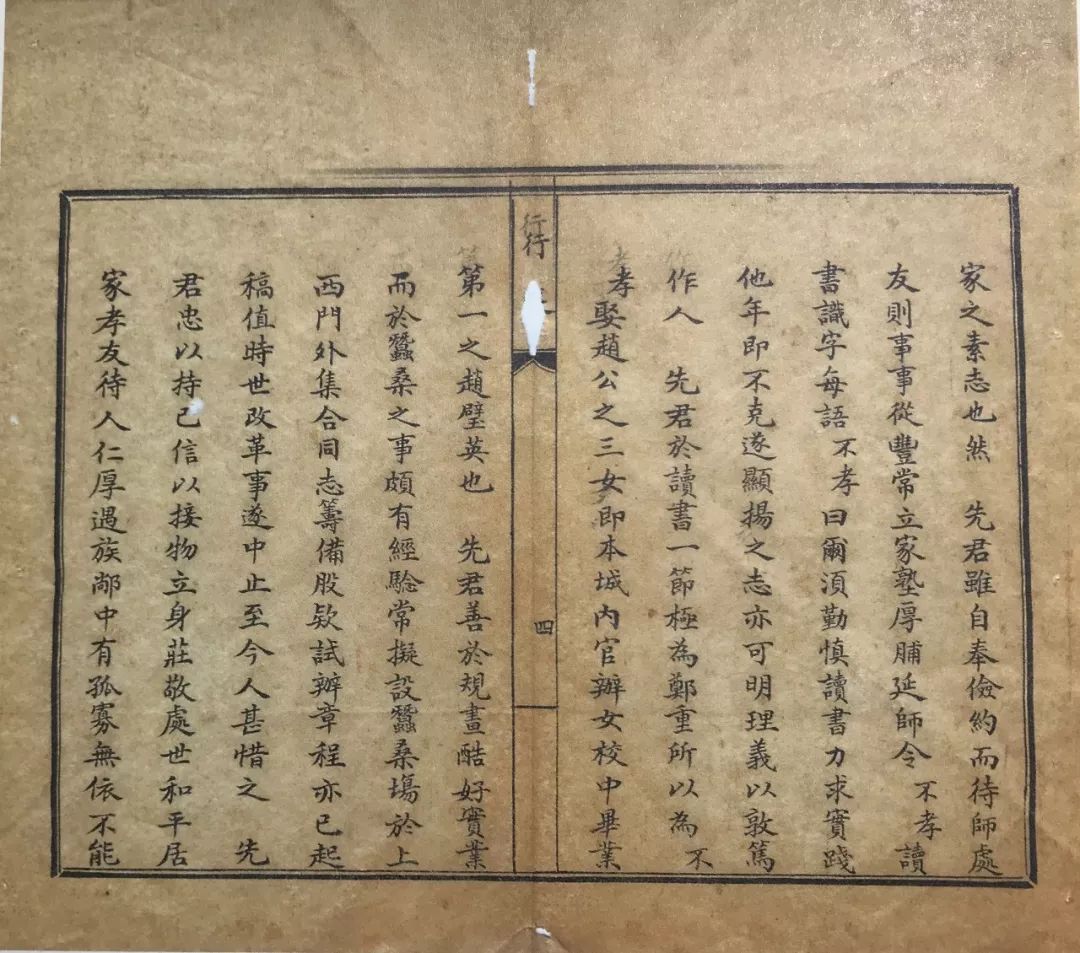 家之素志也然　先君雖自奉儉約而待師處
友則事事從豐常立家塾厚脯延師令不孝讀
書識字每語不孝曰爾須勤慎讀書力求實踐
他年即不克遂顯揚之志亦可明理義以敦篤
作人　先君於讀書一節極為鄭重所以為不
孝娶趙公之三女即本城內官辦女校中畢業
行
四
第一之趙璧英也　先君善於規畫酷好實業
而於蠶桑之事頗有經驗常擬設蠶桑場於上
西門外集合同志籌備股款試辦章程亦已起
稿值時世改革事遂中止至今人甚惜之　先
君忠以持己信以接物立身莊敬處世和平居
家孝友待人仁厚遇族鄰中有孤寡無依不能